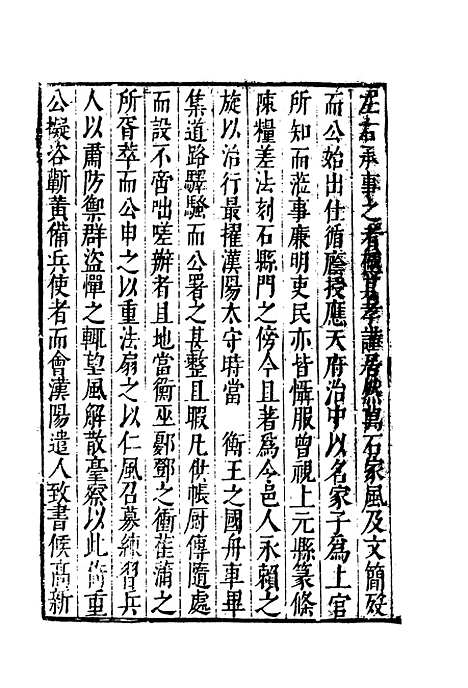 左右承事之者稱其孝謹居然萬石家風及文簡歿
而公始出仕循廕授應天府治中以名家子為上官
所知而蒞事廉明吏民亦皆懾服曾視上元縣篆條
陳糧差法刻石縣門之傍今且著為令邑人永賴之
旋以治行最擢漢陽太守時當 衡王之國舟車畢
集道路驛騷而公署之甚整且暇凡供帳厨傳隨處
而設不啻咄嗟辦者且地當衡巫鄢鄧之衝萑蒲之
所胥萃而公申之以重法扇之以仁風召募練習兵
人以肅防禦群盜憚之輒望風解散臺察以此
重
公擬咨蘄黃備兵使者而會漢陽遣人致書候高新